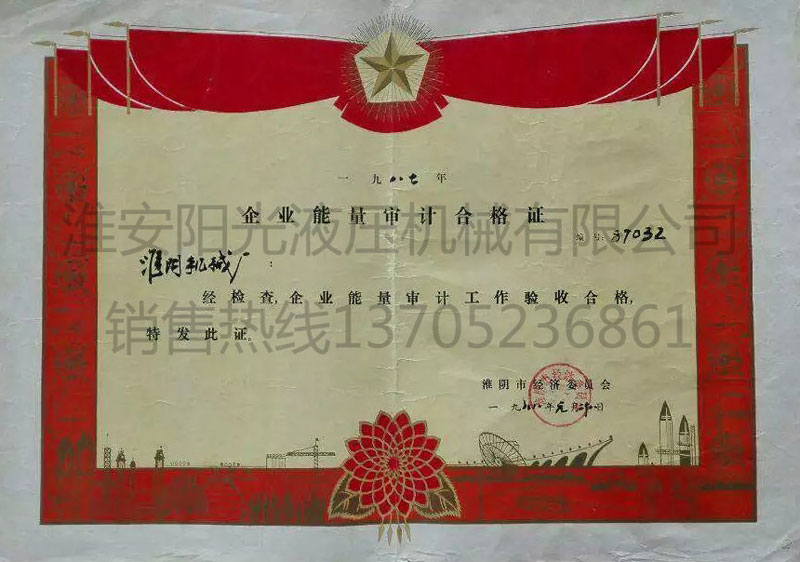 一九八七年
企业能量审计合格证
淮安阳光液压机械有限公司
编号:
7032
淮阴机械厂:
经检查,企业能量审计工作验收合格,
特发此证。
销售热线13705236861
淮阴市经济委员会
一九八八年元月二十日